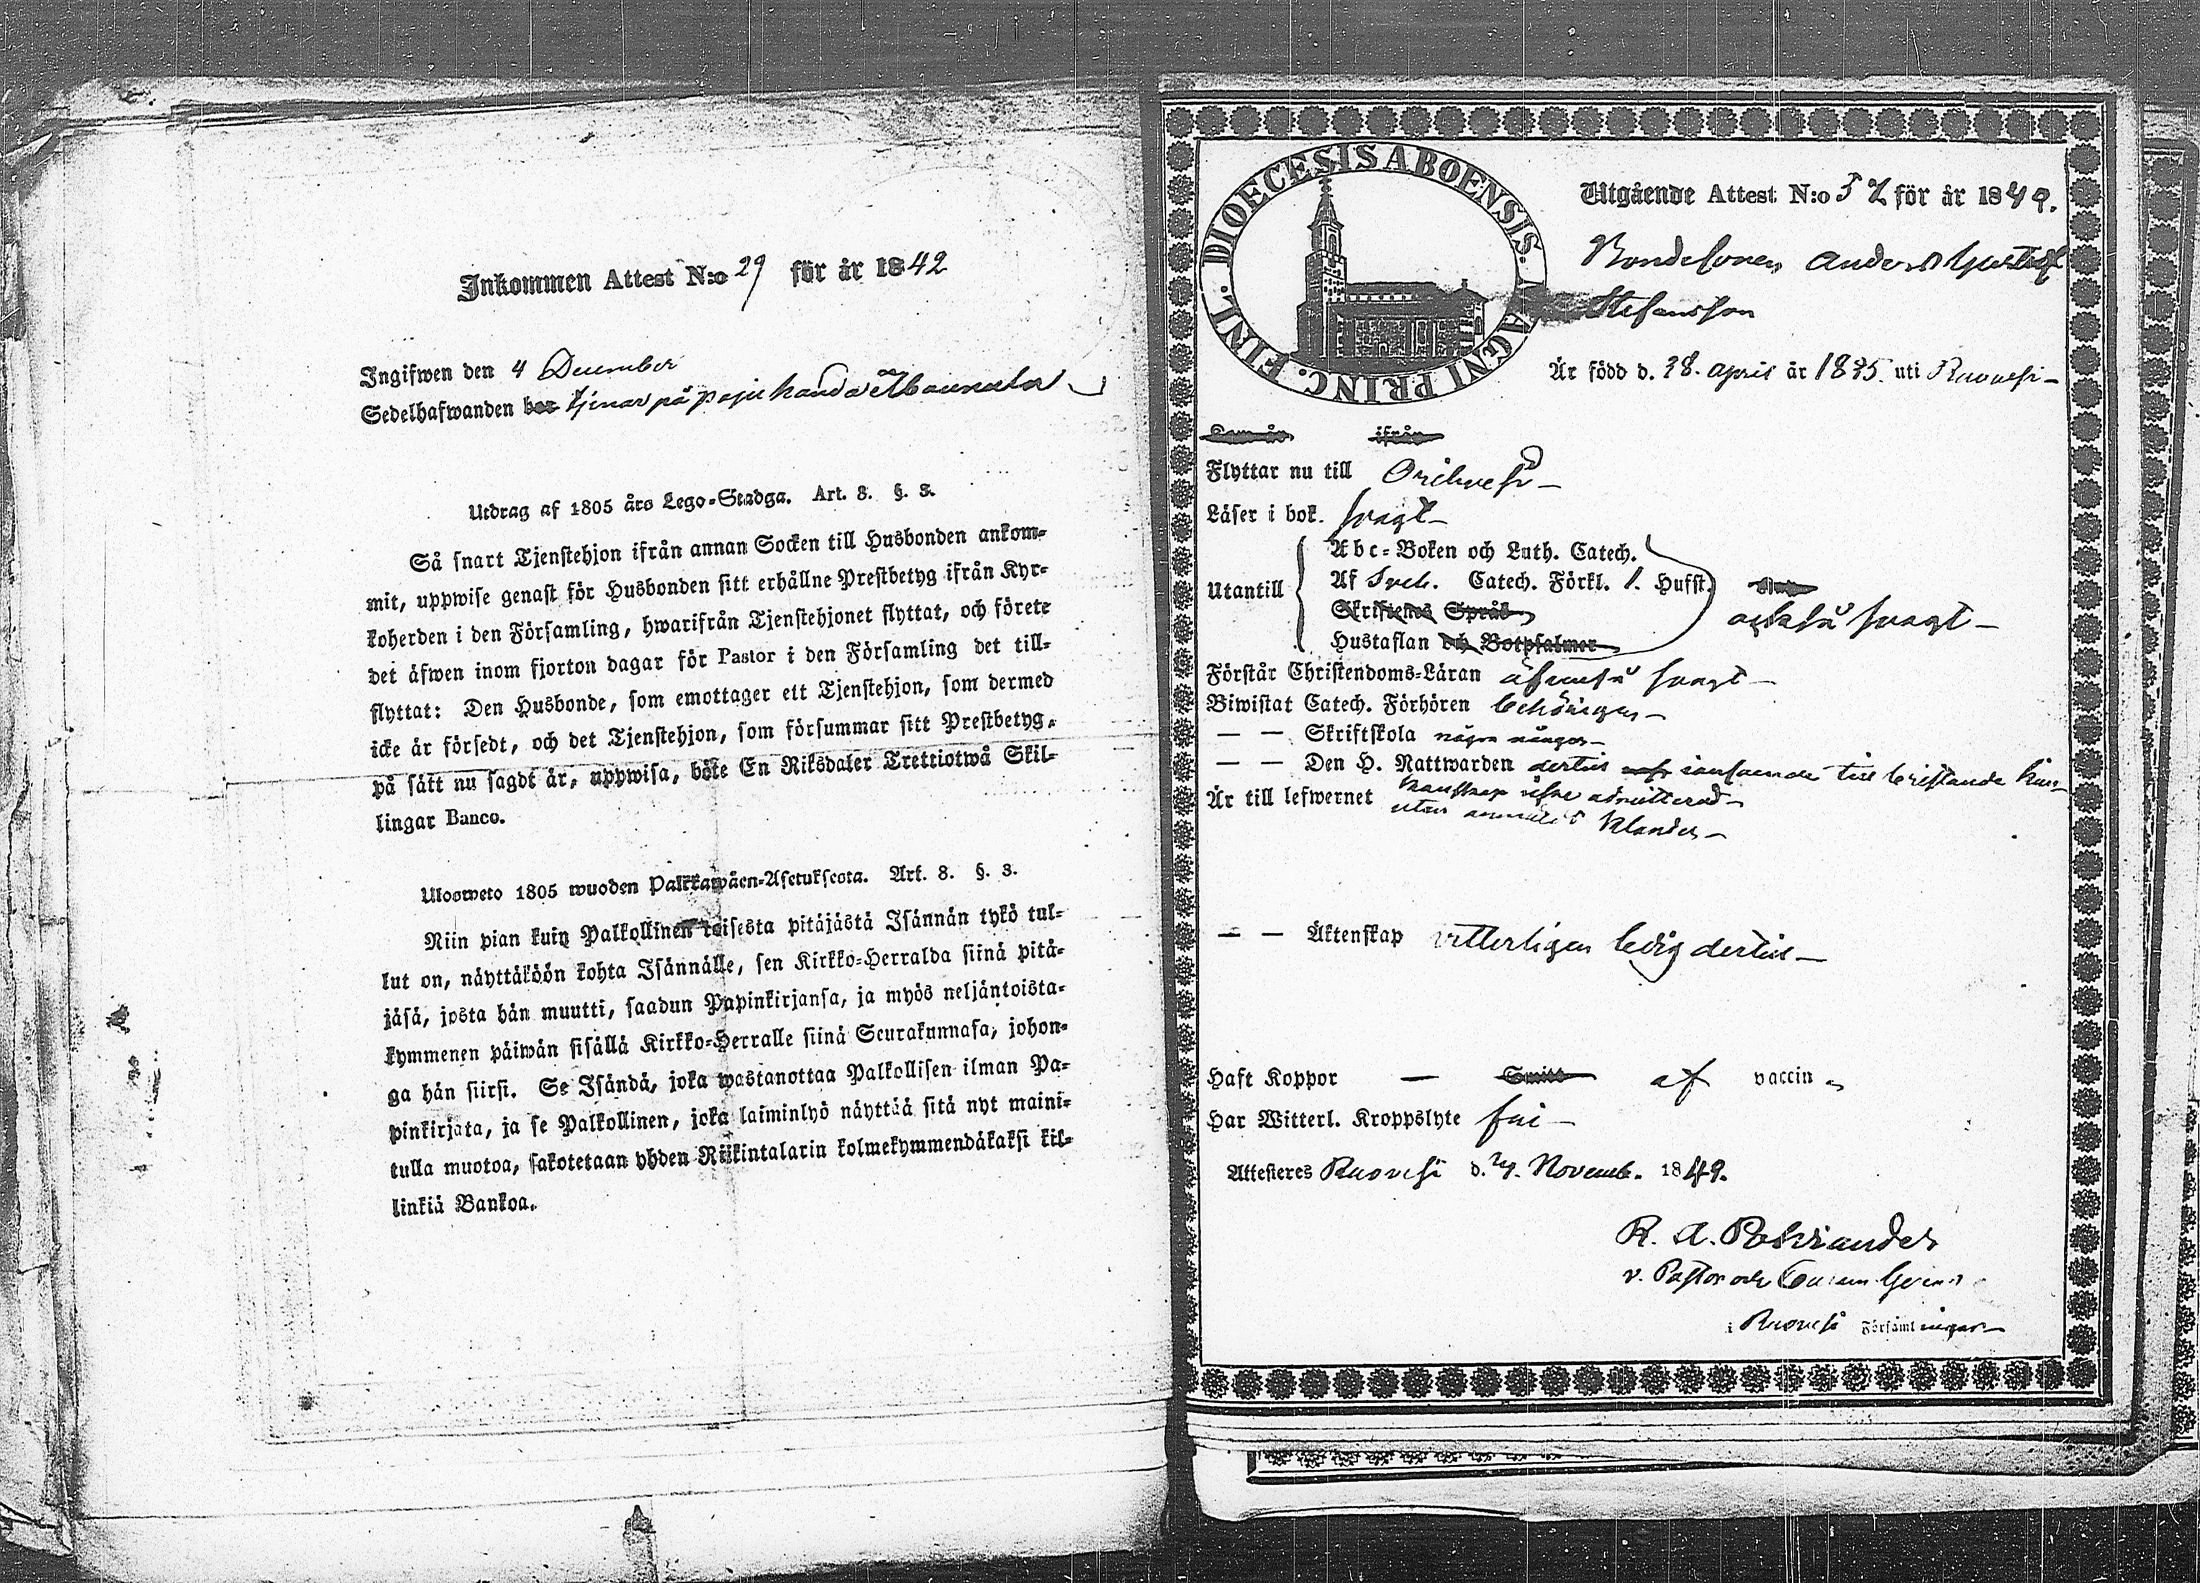 Inkommen Attest N:o 29 för år 1842
Ingifwen den 4 December
Sedelhafwanden bor tjenar på
Utdrag af 1805 års Lego-Stadga. Art. 8. §. 3.
Så snart Tjenstehjon ifrån annan Socken till Husbonden ankom-
mit, uppwise genast för Husbonden sitt erhållne Prestbetyg ifrån Kyr-
koherden i den Församling, hwarifrån Tjenstehjonet flyttat, och förete
det äfwen inom fjorton dagar för Pastor i den Församling det till-
flyttat: Den Husbonde, som emottager ett Tjenstehjon, som dermed
icke är försedt, och det Tjenstehjon, som försummar sitt Prestbetyg,
på sätt nu sagdt är, uppwisa, böte En Riksdaler Trettiotwå Skil-
lingar Banco.
Ulosweto 1805 wuoden Palkkawäen-Asetuksesta. Art. 8. §. 3.
Niin pian kuin Palkollinen toisesta pitäjästä Isännän tykö tul-
lut on, näyttäköön kohta Isännälle, sen Kirkko-Herralda siinä pitä-
jäsä, josta hän muutti, saadun Papinkirjansa, ja myös neljäntoista-
kymmenen päiwän sisällä Kirkko-Herralle siinä Seurakunnasa, johon-
ga hän siirsi. Se Isändä, joka wastanottaa Palkollisen ilman Pa-
pinkirjata, ja se Palkollinen, joka laiminlyö näyttää sitä nyt maini-
tulla muotoa, sakotetaan yhden Riikintalarin kolmekymmendäkaksi kil-
linkiä Bankoa.
DIOECESIS ABOENSIS. MAGNI PRINC. FINL.
Utgående Attest N:o 52 för år 1849.
Bondesonen Anders Gustaf
Stefansson
Är född d. 28. april år 1835. uti Ruovesi
Kom år ifrån
Flyttar nu till Orihvesi
Läser i bok. svagt
Utantill
Abc-Boken och Luth. Catech.
Af Sveb. Catech. Förkl. 1. Hufst.
Skriftenes Språk
Hustaflan och Botpsalmer
också svagt
Förstår Christendoms-Läran äfvenså svagt
Biwistat Catech. Förhören behörigen
— — Skriftskola några gånger
— — Den H. Nattwarden dertill i anseende till bristande kun-
skap icke admitterad
Är till lefwernet utan anmäldt klander
— — Äktenskap vitterligen ledig dertill
Haft Koppor — Smitt af vaccin
Har Witterl. Kroppslyte fri
Attesteras Ruovesi d. 24. Novemb. 1849.
v. Pastor och
i Ruovesi Församlingar